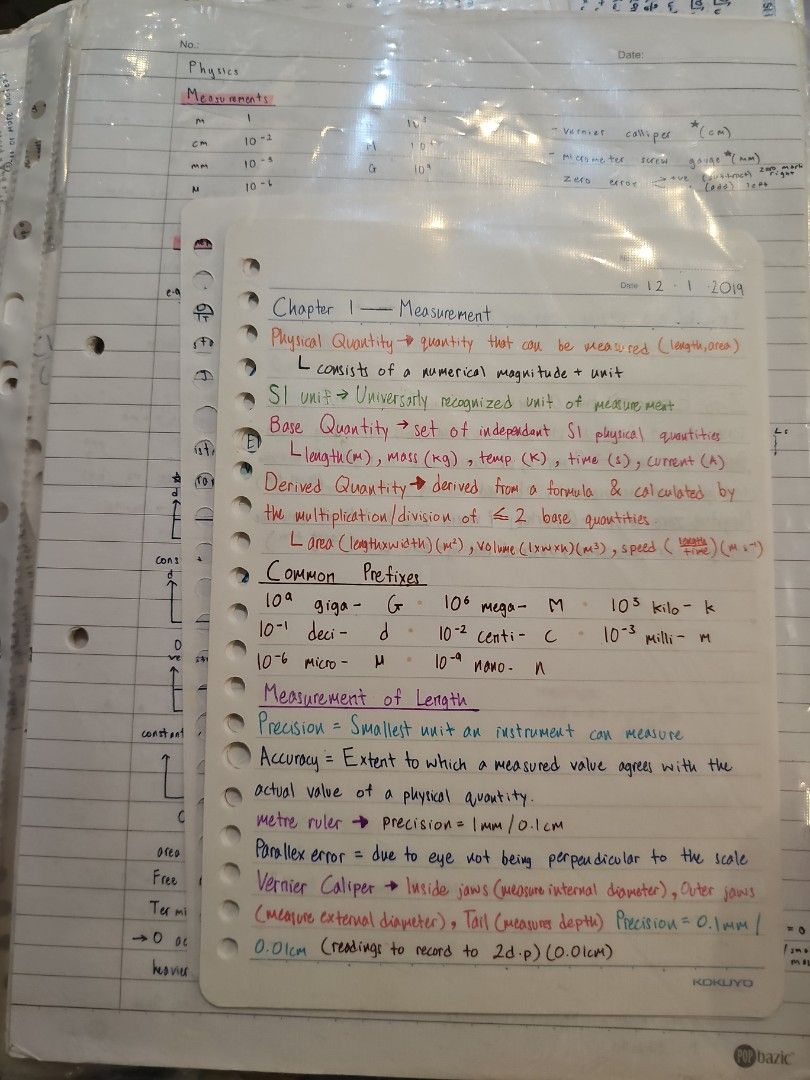 No.:
Date:
Physics
Measurements
m 1
cm 10⁻²
mm 10⁻³
μ 10⁻⁶
M
G 10⁹
- vernier calliper *(cm)
- micrometer screw gauge *(mm)
zero error +ve (subtract) zero mark right
(add) left
e.g
Date 12 · 1 · 2019
Chapter 1 — Measurement
Physical Quantity → quantity that can be measured (length, area)
└ consists of a numerical magnitude + unit
SI unit → Universarly recognized unit of measurement
Base Quantity → set of independant SI physical quantities
└ length (m), mass (kg), temp. (K), time (s), current (A)
Derived Quantity → derived from a formula & calculated by
the multiplication/division of ≤ 2 base quantities.
└ area (lengthxwidth)(m²), volume (lxwxh)(m³), speed (length/time)(m s⁻¹)
Common Prefixes
10⁹ giga- G · 10⁶ mega- M · 10³ kilo- k
10⁻¹ deci- d · 10⁻² centi- c · 10⁻³ milli- m
10⁻⁶ micro- μ · 10⁻⁹ nano- n
Measurement of Length
Precision = Smallest unit an instrument can measure
Accuracy = Extent to which a measured value agrees with the
actual value of a physical quantity.
metre ruler → precision = 1mm / 0.1cm
Parallex error = due to eye not being perpendicular to the scale
Vernier Caliper → Inside jaws (measure internal diameter), Outer jaws
(measure external diameter), Tail (measures depth) Precision = 0.1mm /
0.01cm (readings to record to 2d.p) (0.01cm)
KOKUYO
cons
d
constant
area
Free
Termi
→ 0 ac
heavier
= 0
POP bazic